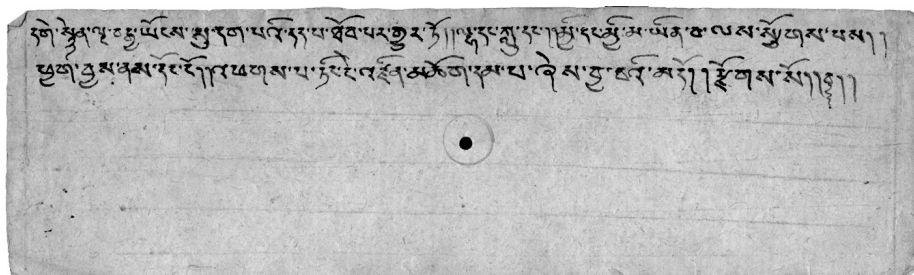 དགེ་སྙེན་ལྔ་བརྒྱ་ཡོངས་སུ་དག་པའི་དད་པ་ཐོབ་པར་གྱུར་ཏོ།།ལྷ་དང་ཀླུ་དང་།།མྱི་དང་མྱི་མ་ཡིན་བ་ལས་སྩོགས་པས།།
ཕྱག་བྱས་ནས་དོང་ངོ།།འཕགས་པ་ཏིང་ངེ་འཛིན་མཆོག་དམ་པ་ཞེས་བྱ་བའི་མདོ།།རྫོགས་སོ།།